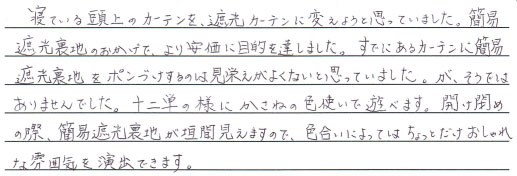 寝ている頭上のカーテンを、遮光カーテンに変えようと思っていました。簡易
遮光裏地のおかげで、より安価に目的を達しました。すでにあるカーテンに簡易
遮光裏地をポンづけするのは見栄えがよくないと思っていました。が、そうでは
ありませんでした。十二単の様にかさねの色使いで遊べます。開け閉め
の際、簡易遮光裏地が垣間見えますので、色合いによってはちょっとだけおしゃれ
な雰囲気を演出できます。